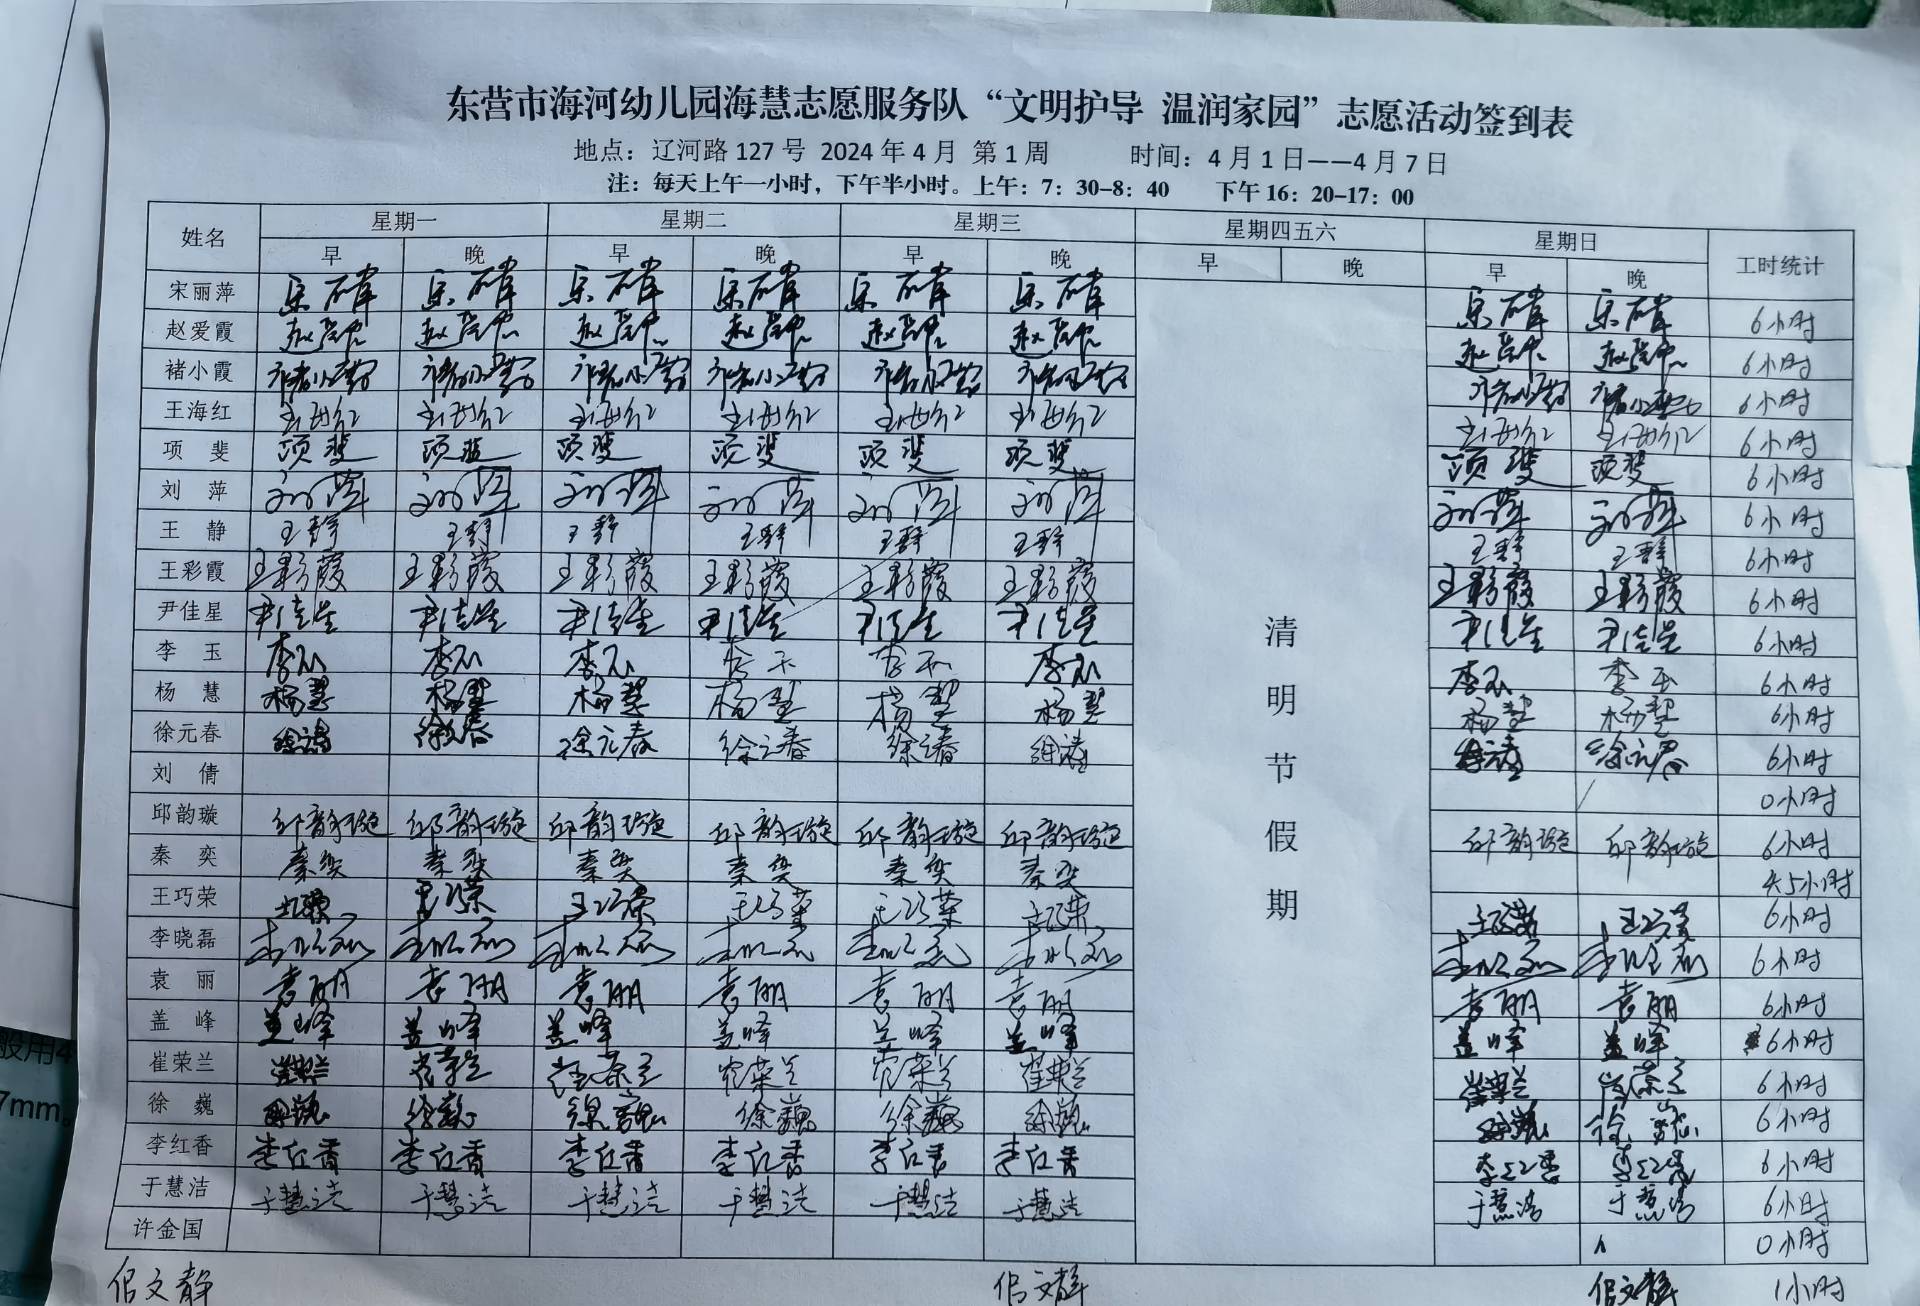 东营市海河幼儿园海慧志愿服务队“文明护导 温润家园”志愿活动签到表
地点：辽河路 127 号 2024 年 4 月 第 1 周 时间：4 月 1 日——4 月 7 日
注：每天上午一小时，下午半小时。上午：7：30-8：40 下午 16：20-17：00
姓名 星期一 星期二 星期三 星期四五六 星期日 工时统计
早 晚 早 晚 早 晚 早 晚 早 晚
宋丽萍 6小时
赵爱霞 6小时
褚小霞 褚小霞 褚小霞 褚小霞 褚小霞 褚小霞 褚小霞 褚小霞 褚小霞 6小时
王海红 王海红 王海红 王海红 王海红 王海红 王海红 王海红 王海红 6小时
项 斐 项斐 项斐 项斐 项斐 项斐 项斐 项斐 项斐 6小时
刘 萍 刘萍 刘萍 刘萍 刘萍 刘萍 刘萍 刘萍 刘萍 6小时
王 静 王静 王静 王静 王静 王静 王静 王静 王静 6小时
王彩霞 王彩霞 王彩霞 王彩霞 王彩霞 王彩霞 王彩霞 王彩霞 王彩霞 6小时
尹佳星 尹佳星 尹佳星 尹佳星 尹佳星 尹佳星 尹佳星 尹佳星 尹佳星 6小时
李 玉 李玉 李玉 李玉 李玉 李玉 李玉 李玉 李玉 6小时
杨 慧 杨慧 杨慧 杨慧 杨慧 杨慧 杨慧 杨慧 杨慧 6小时
徐元春 徐元春 徐元春 徐元春 徐元春 徐元春 徐元春 徐元春 徐元春 6小时
刘 倩 0小时
邱韵璇 邱韵璇 邱韵璇 邱韵璇 邱韵璇 邱韵璇 邱韵璇 邱韵璇 邱韵璇 6小时
秦 奕 秦奕 秦奕 秦奕 秦奕 秦奕 秦奕 4.5小时
王巧荣 王巧荣 王巧荣 王巧荣 王巧荣 王巧荣 王巧荣 王巧荣 王巧荣 6小时
李晓磊 李晓磊 李晓磊 李晓磊 李晓磊 李晓磊 李晓磊 李晓磊 李晓磊 6小时
袁 丽 袁丽 袁丽 袁丽 袁丽 袁丽 袁丽 袁丽 袁丽 6小时
盖 峰 盖峰 盖峰 盖峰 盖峰 盖峰 盖峰 盖峰 盖峰 6小时
崔荣兰 崔荣兰 崔荣兰 崔荣兰 崔荣兰 崔荣兰 崔荣兰 崔荣兰 崔荣兰 6小时
徐 巍 徐巍 徐巍 徐巍 徐巍 徐巍 徐巍 徐巍 徐巍 6小时
李红香 李红香 李红香 李红香 李红香 李红香 李红香 李红香 李红香 6小时
于慧洁 于慧洁 于慧洁 于慧洁 于慧洁 于慧洁 于慧洁 于慧洁 于慧洁 6小时
许金国 0小时
清明节假期
文静 文静 文静 1小时
般用4
7mm。